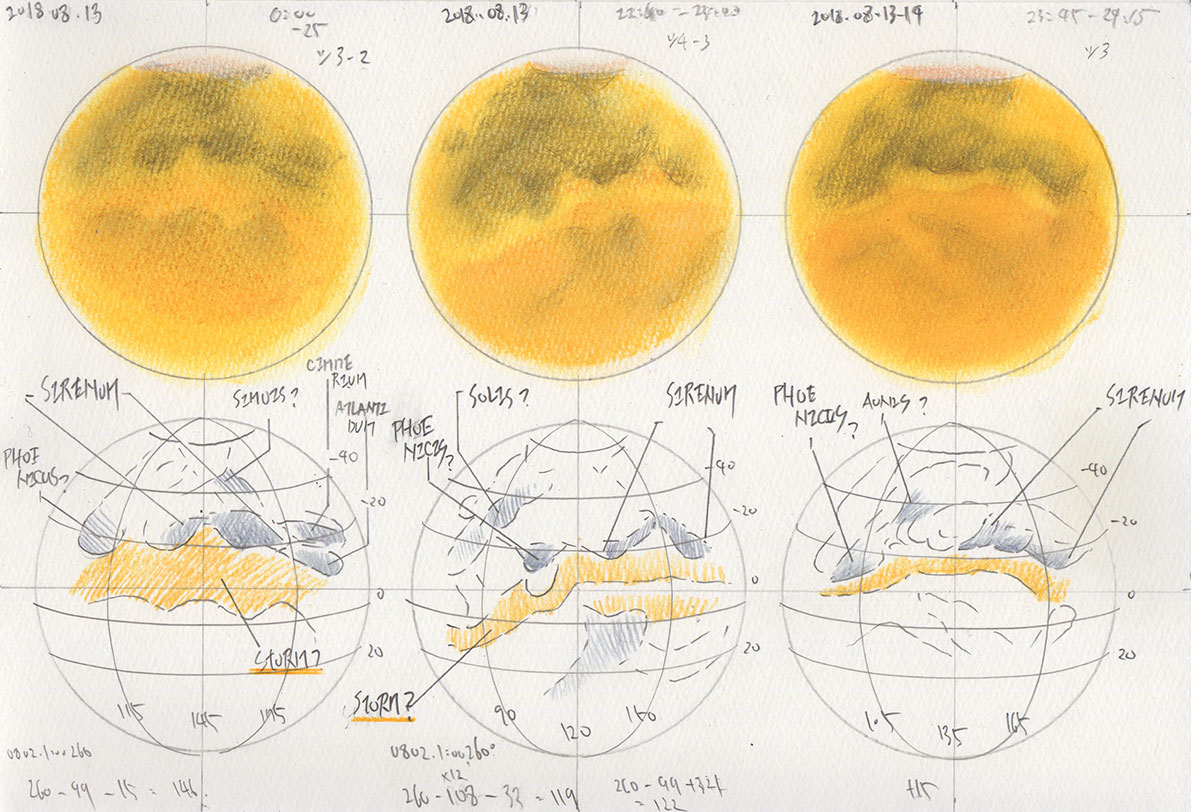 2018.08.13
0:00
-25
3-2
2018.08.13
4-3
2018.08.13-14
23:45-24:15
3
SIRENUM
SIMOIS?
CIMME
RIUM
ATLANTI
DUM
PHOE
NICUS?
-40
-20
0
20
STORM?
115
145
175
0802.1:00260
260-99-15=146
SOLIS?
SIRENUM
PHOE
NICIS?
-40
-20
0
20
STORM?
90
120
150
0802.1:00260°
x12
260-108-33=119
= 122
PHOE
NICUS?
AONIS?
SIRENUM
-40
-20
0
20
105
135
165
+15